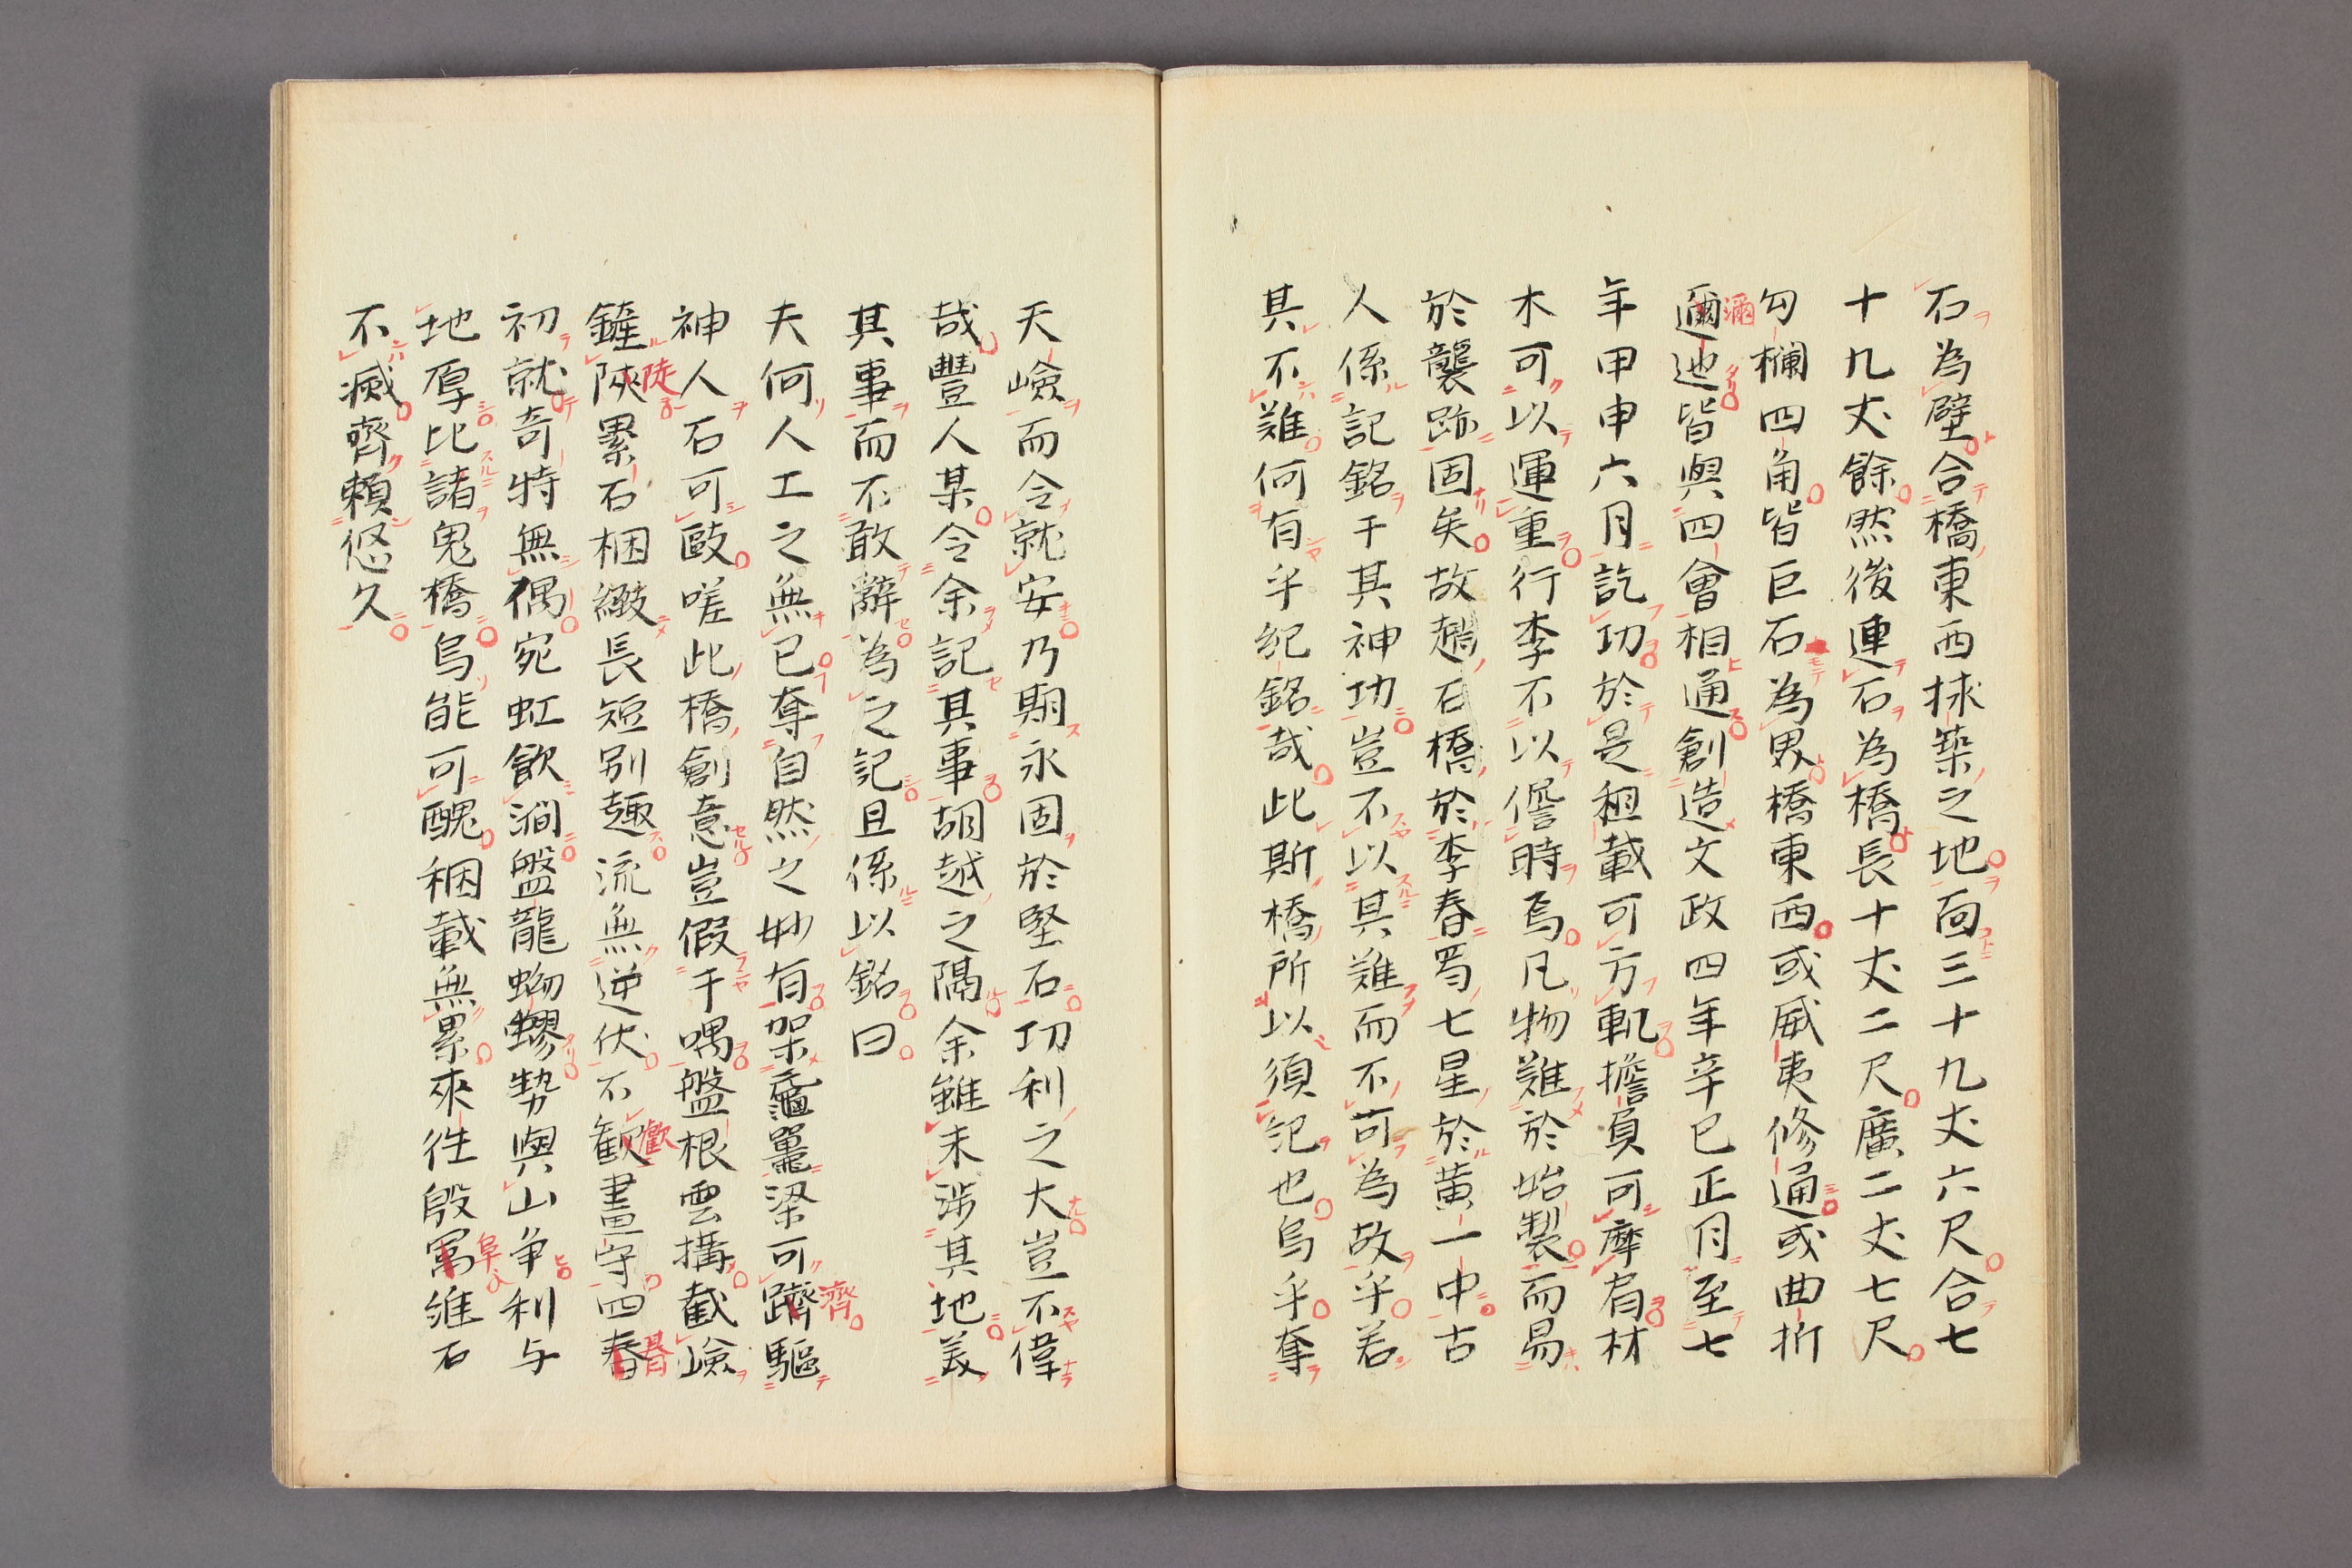 石為壁合橋東西捄築之地向三十九丈六尺合七
十九丈餘然後連石為橋長十丈二尺廣二丈七尺
勾欄四角皆巨石為界橋東西或威夷修通或曲折
邐迆皆與四會相通創造文政四年辛巳正月至七
年甲申六月訖功於是租載可方軌擔負可摩肩材
木可以運重行李不以僭時焉凡物難於始製而易
於襲跡固矣故趙石橋於李春蜀七星於黄一中古
人係記銘于其神功豈不以其難而不可為故乎若
其不難何有乎紀銘哉此斯橋所以須記也烏乎奪
天嶮而令就安乃期永固於堅石功利之大豈不偉
哉豐人某令余記其事胡越之隔余雖未渉其地美
其事而不敢辭為之記且係以銘曰
夫何人工之無已奪自然之妙有架黿鼉梁可躋驅
神人石可毆嗟此橋創意豈假于喁盤根雲搆截嶮
鏟陝累石梱緻長短別趣流無逆伏不観畫守四春
初就奇特無偶宛虹飲澗盤龍蚴蟉勢與山争利与
地厚比諸鬼橋烏能可醜稛載無累來往殷富維石
不滅齊頼悠久
瀰
濟
陡
歡
朞
阜